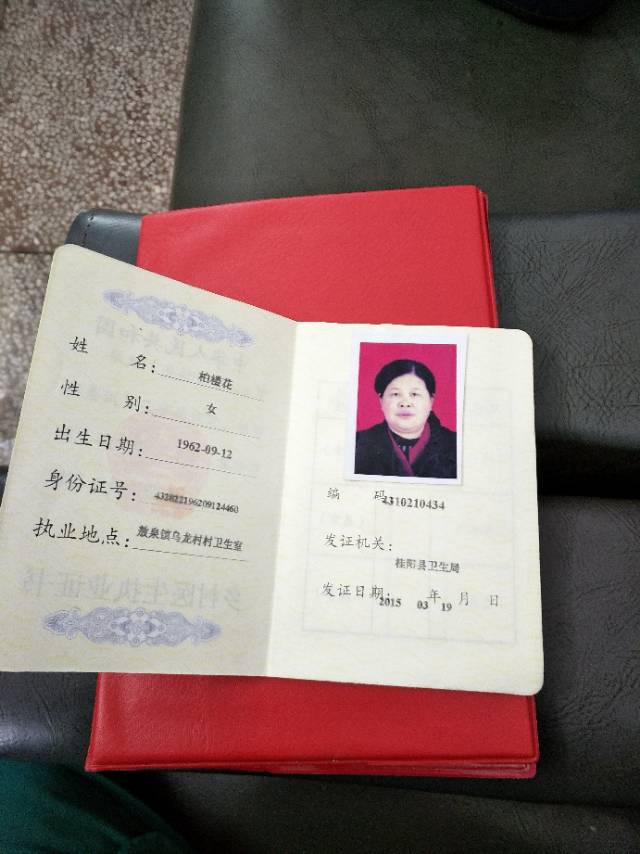 姓 名： 柏楼花
性 别： 女
出生日期： 1962-09-12
身份证号： 432822196209124460
执业地点： 敖泉镇乌龙村村卫生室
编 码： 4310210434
发证机关：
桂阳县卫生局
发证日期： 2015 年 03 月 19 日